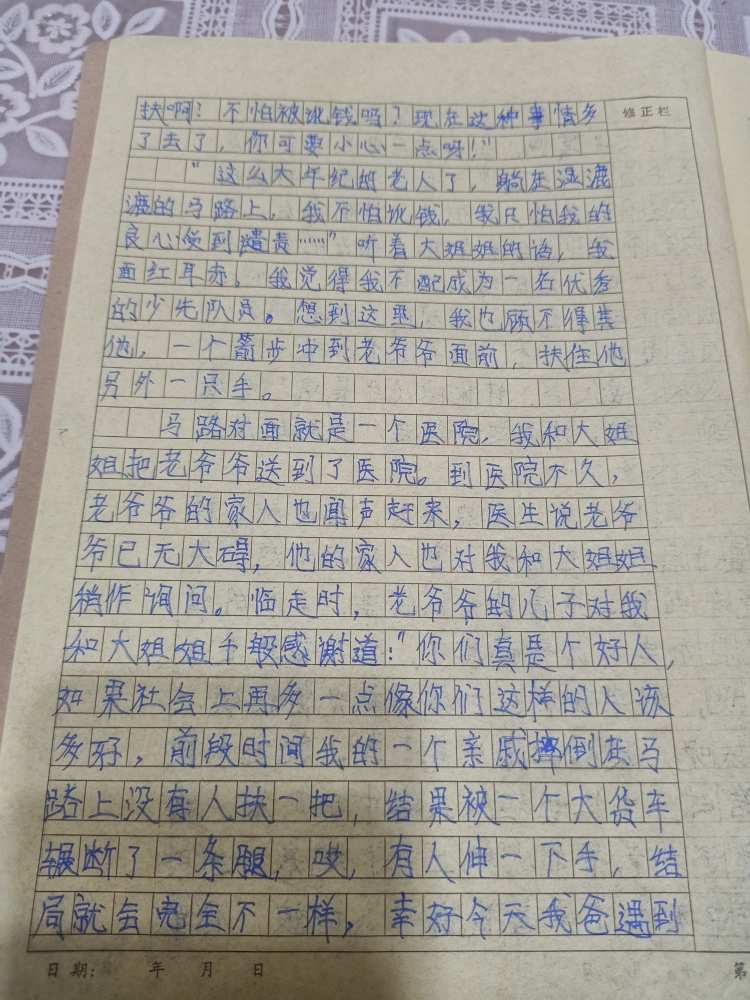 扶啊？不怕被讹钱吗？现在这种事情多
修正栏
了去了，你可要小心一点呀！”
“这么大年纪的老人了，躺在湿漉
漉的马路上，我不怕讹钱，我只怕我的
良心受到谴责……”听着大姐姐的话，我
面红耳赤，我觉得我不配成为一名优秀
的少先队员。想到这里，我也顾不得其
他，一个箭步冲到老爷爷面前，扶住他
另外一只手。
马路对面就是一个医院，我和大姐
姐把老爷爷送到了医院。到医院不久，
老爷爷的家人也闻声赶来，医生说老爷
爷已无大碍，他的家人也对我和大姐姐
稍作询问。临走时，老爷爷的儿子对我
和大姐姐千般感谢道：“你们真是个好人，
如果社会上再多一点像你们这样的人该
多好，前段时间我的一个亲戚摔倒在马
路上没有人扶一把，结果被一个大货车
辗断了一条腿，哎，有人伸一下手，结
局就会完全不一样，幸好今天我爸遇到
日期： 年 月 日
第